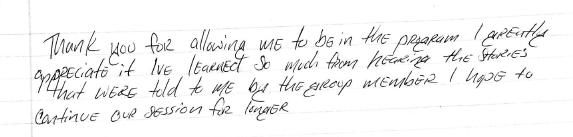 Thank you for allowing me to be in the program I greatly
appreciate it I've learned so much from hearing the stories
that were told to me by the group member I hope to
continue our session for longer